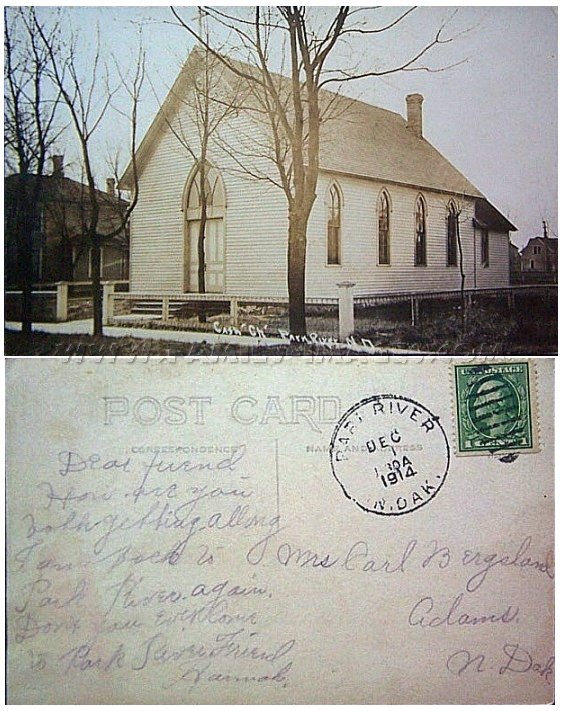 Cong. Ch. Park River N.D.
POST CARD
CORRESPONDENCE
NAME AND ADDRESS
PARK RIVER
DEC
1
10A
1914
N. DAK.
U.S. POSTAGE
1 CENT 1
Dear friend
How are you
both getting along
I am back to
Park River again.
Don't you ever come
to Park River Friend
Hannah.
Mrs Carl Bergsland
Adams.
N. Dak